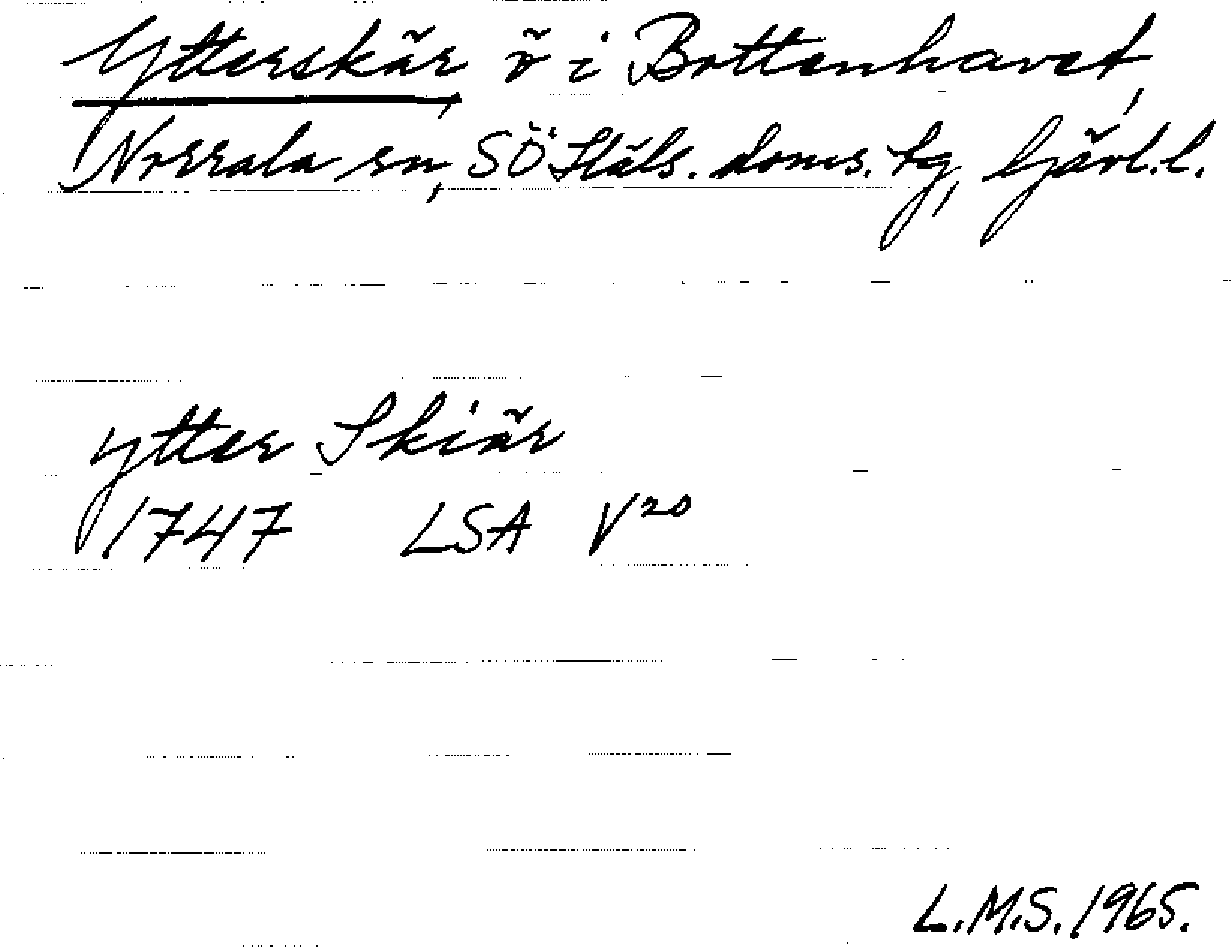 Ytterskär ö i Bottenhavet,
Norrala sn, SÖ Häls. doms. tg, Gävl.l.
ytter Skiär
1747 LSA V20
L.M.S. 1965.